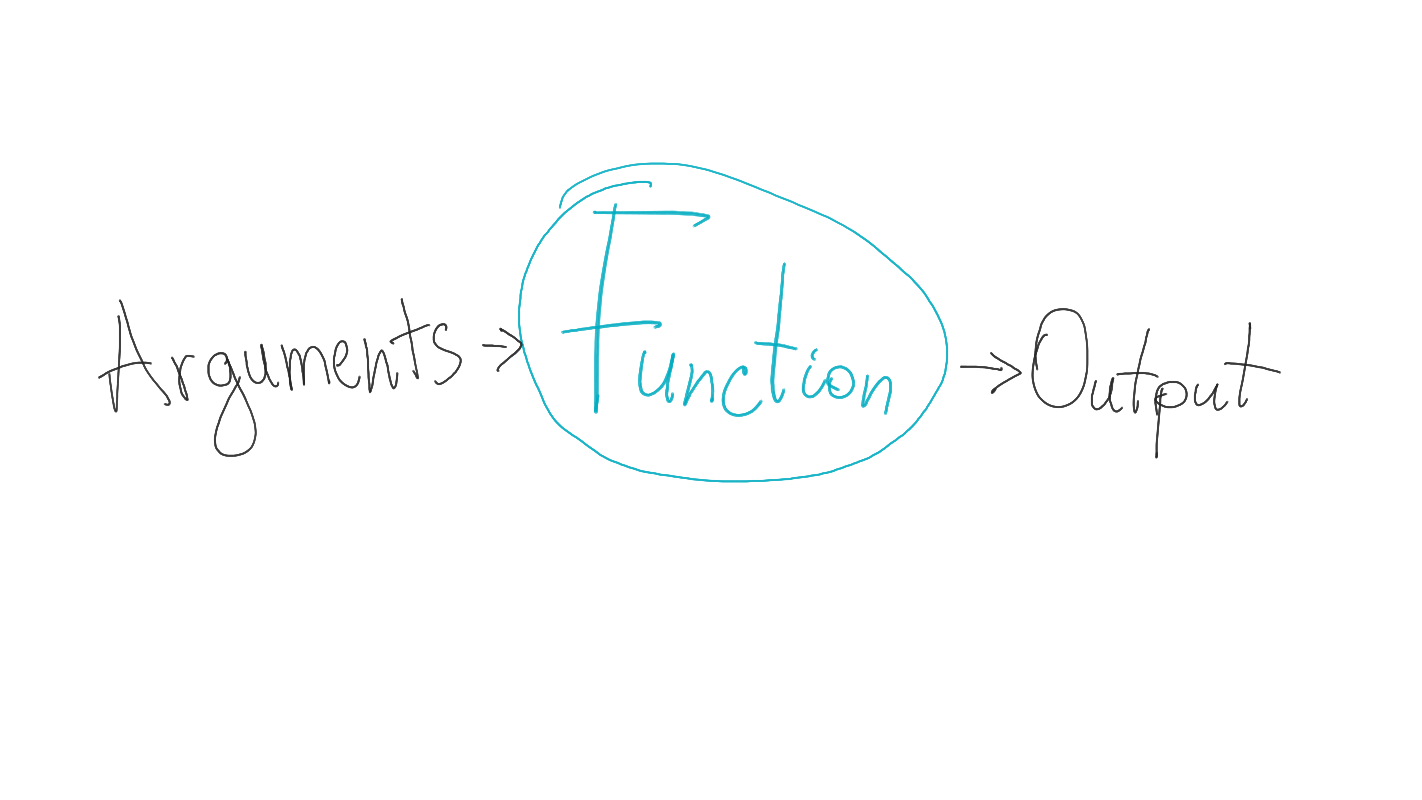 Arguments → Function → Output